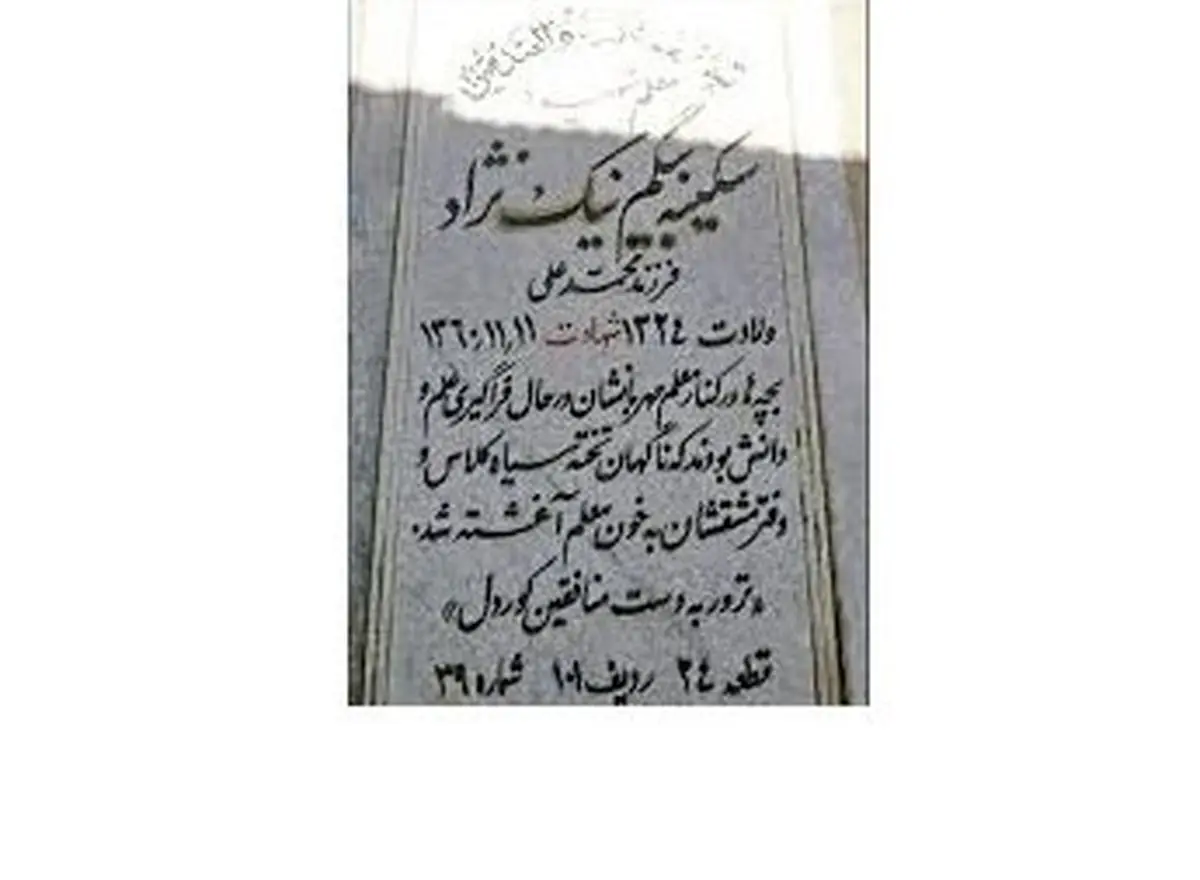 والصدیقین
سکینه بیگم نیک نژاد
فرزند محمد علی
ولادت ۱۳۲۴ شهادت ۱۳۶۰/۱۱/۱۱
بچه ها در کنار معلم مهربانشان در حال فراگیری علم و
دانش بودند که ناگهان تخته سیاه کلاس و
دفتر مشقشان به خون معلم آغشته شد.
«ترور به دست منافقین کوردل»
قطعه ۲۴ ردیف ۱۰۱ شماره ۳۹